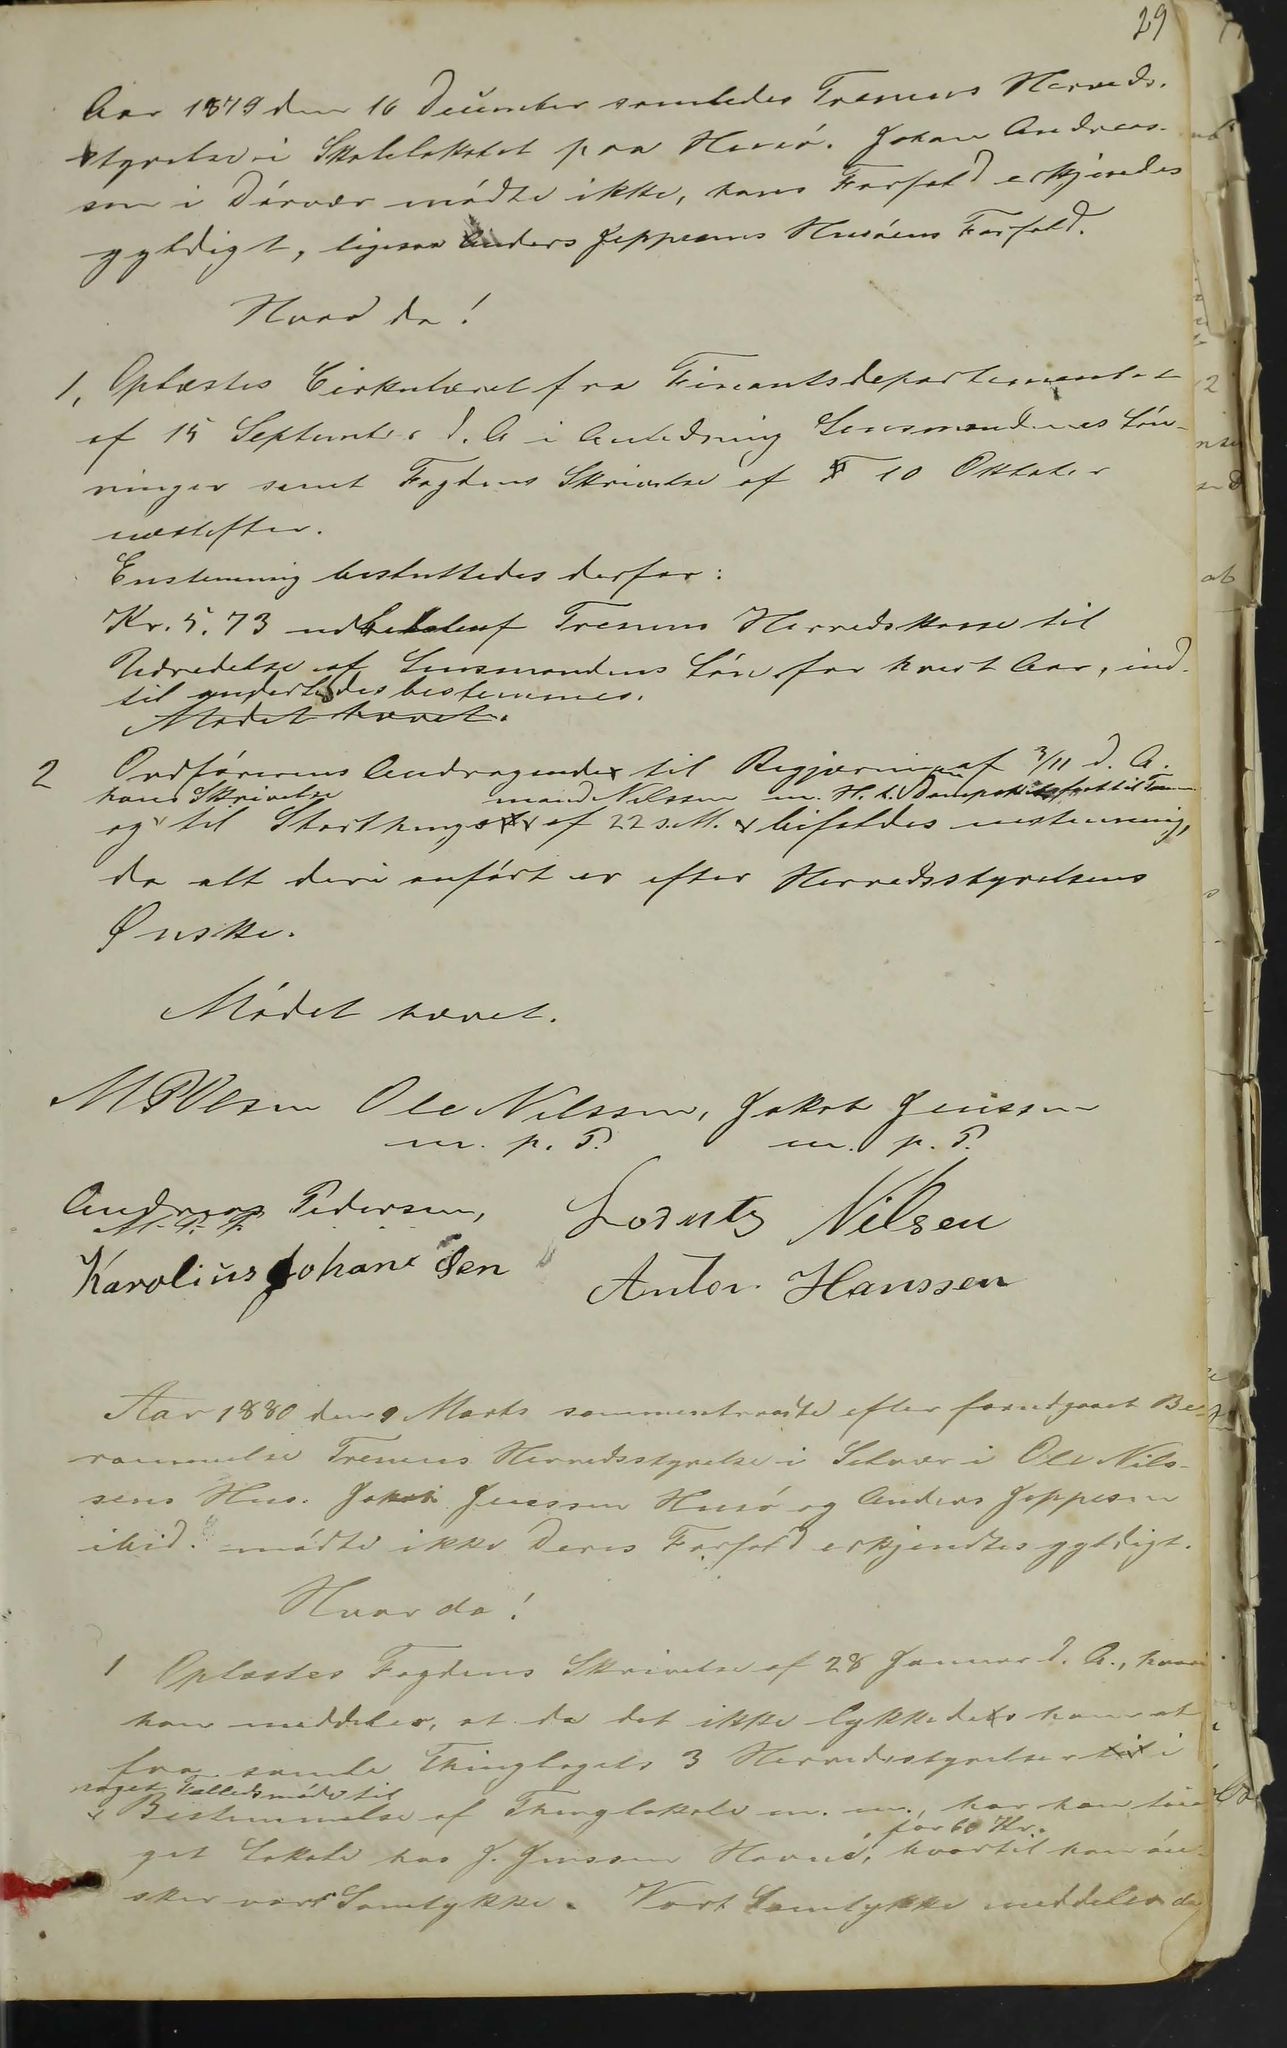 29
Aar 1879 den 16 December samledes Trænens Herreds-
styrelse i Skolelokalet paa Husø. Johan Andreas-
sen i Dørvær mødte ikke, hans Forfald erkjendes
gyldigt, ligesaa Anders Jeppesens Husøens Forfald.
Hvad da!
1, Oplæstes Cirkulæret fra Finantsdepartementet
af 15 September d. A i Anledning Lensmændenes Løn-
ninger samt Fogdens Skrivelse af 10 Oktober
næstefter.
Enstemmig besluttedes derfor:
Kr. 5.73 udbetales af Trænens Herredskasse til
Udredelse af Lensmandens Løn for hvert Aar, ind-
til anderledes bestemmes.
Mødet hævet.
2 Ordførerens Andragende til Regjeringen af 3/11 d. A.
hans Skrivelse mand Nilssen m. H. t. Dampskibs til
og til Storthings af 22 s. M. bifaldes enstemmig,
da alt deri anført er efter Herredsstyrelsens
Ønske.
Mødet hævet.
M P Olsen Ole Nilssen, Jakob Jenssen
m. p. P. m. p. P.
Andreas Pedersen, Lorents Nilsen
M. P. P.
Karolius Johansen Anton Hanssen
Aar 1880 den 9 Marts sammentraadte efter forudgaaet Be-
rammelse Trænens Herredsstyrelse i Selvær i Ole Nils-
sens Hus. Jakob Jenssen Husø og Anders Jeppesen
ibid. mødte ikke Deres Forfald erkjendtes gyldigt.
Hvor da!
1 Oplæstes Fogdens Skrivelse af 28 Januar d. A., hvori
han meddeler, at da det ikke lykkedes ham at
faa samle Thinglagets 3 Herredsstyrelser til i
noget Fællesmøde til
Bestemmelse af Thinglokale m. m., har han
for 60 Kr.
get Lokale hos J. Jenssen Husø, hvortil han øn-
sker vort Samtykke. Vort Samtykke meddeles da